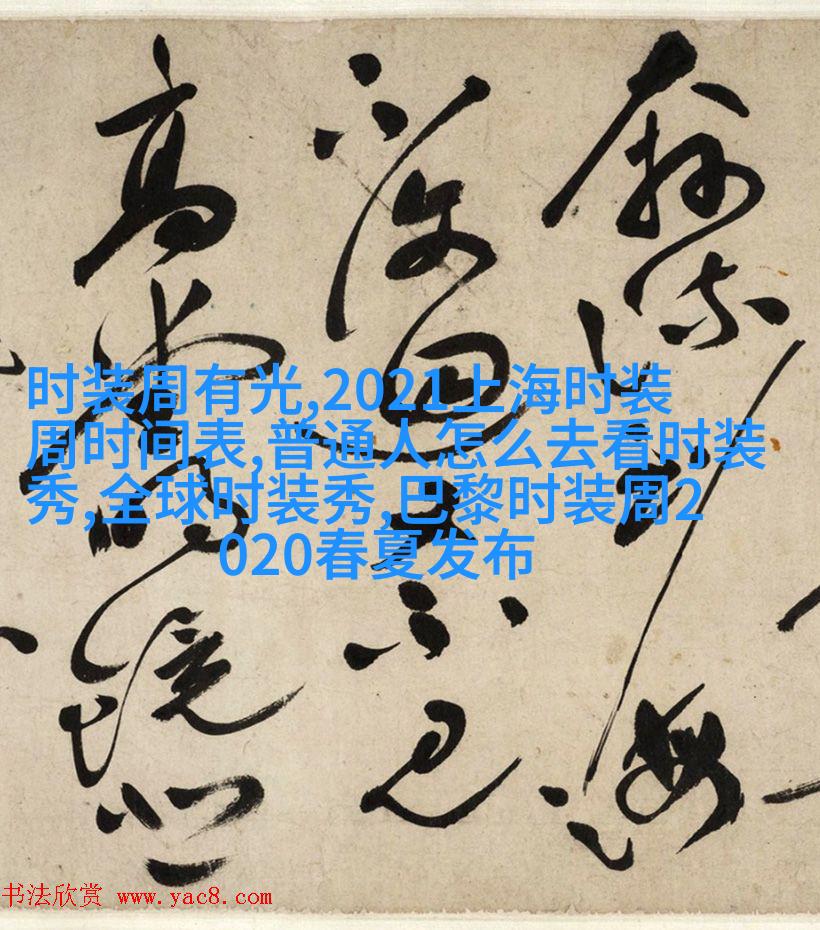 奔流到海
不復回不見
高堂明鏡悲
时装周有光,2021上海时装
周时间表,普通人怎么去看时装
秀,全球时装秀,巴黎时装周2
020春夏发布
书法欣赏 www.yac8.com